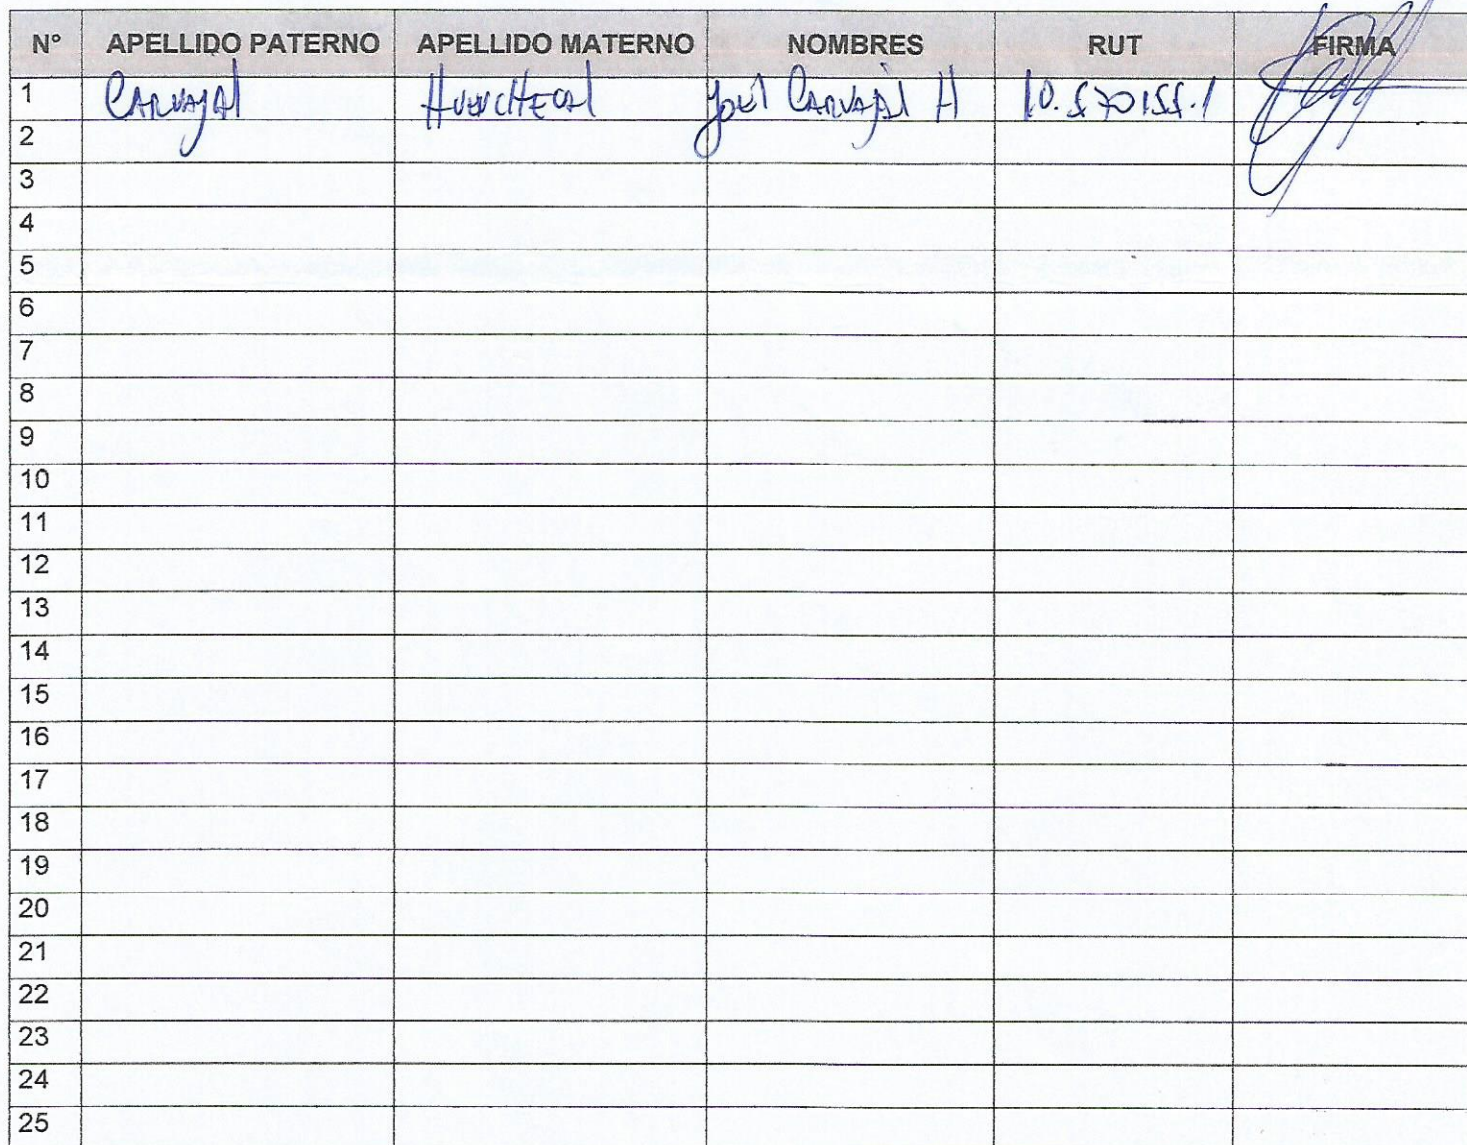 N° APELLIDO PATERNO APELLIDO MATERNO NOMBRES RUT FIRMA
1 Carvajal Huenchecal Joel Carvajal H 10.570155.1
2
3
4
5
6
7
8
9
10
11
12
13
14
15
16
17
18
19
20
21
22
23
24
25